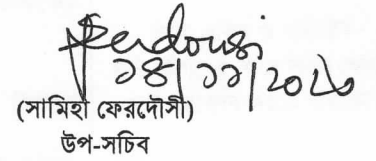 Ferdousi
১৪/১১/২০২৩
(সামিহা ফেরদৌসী)
উপ-সচিব